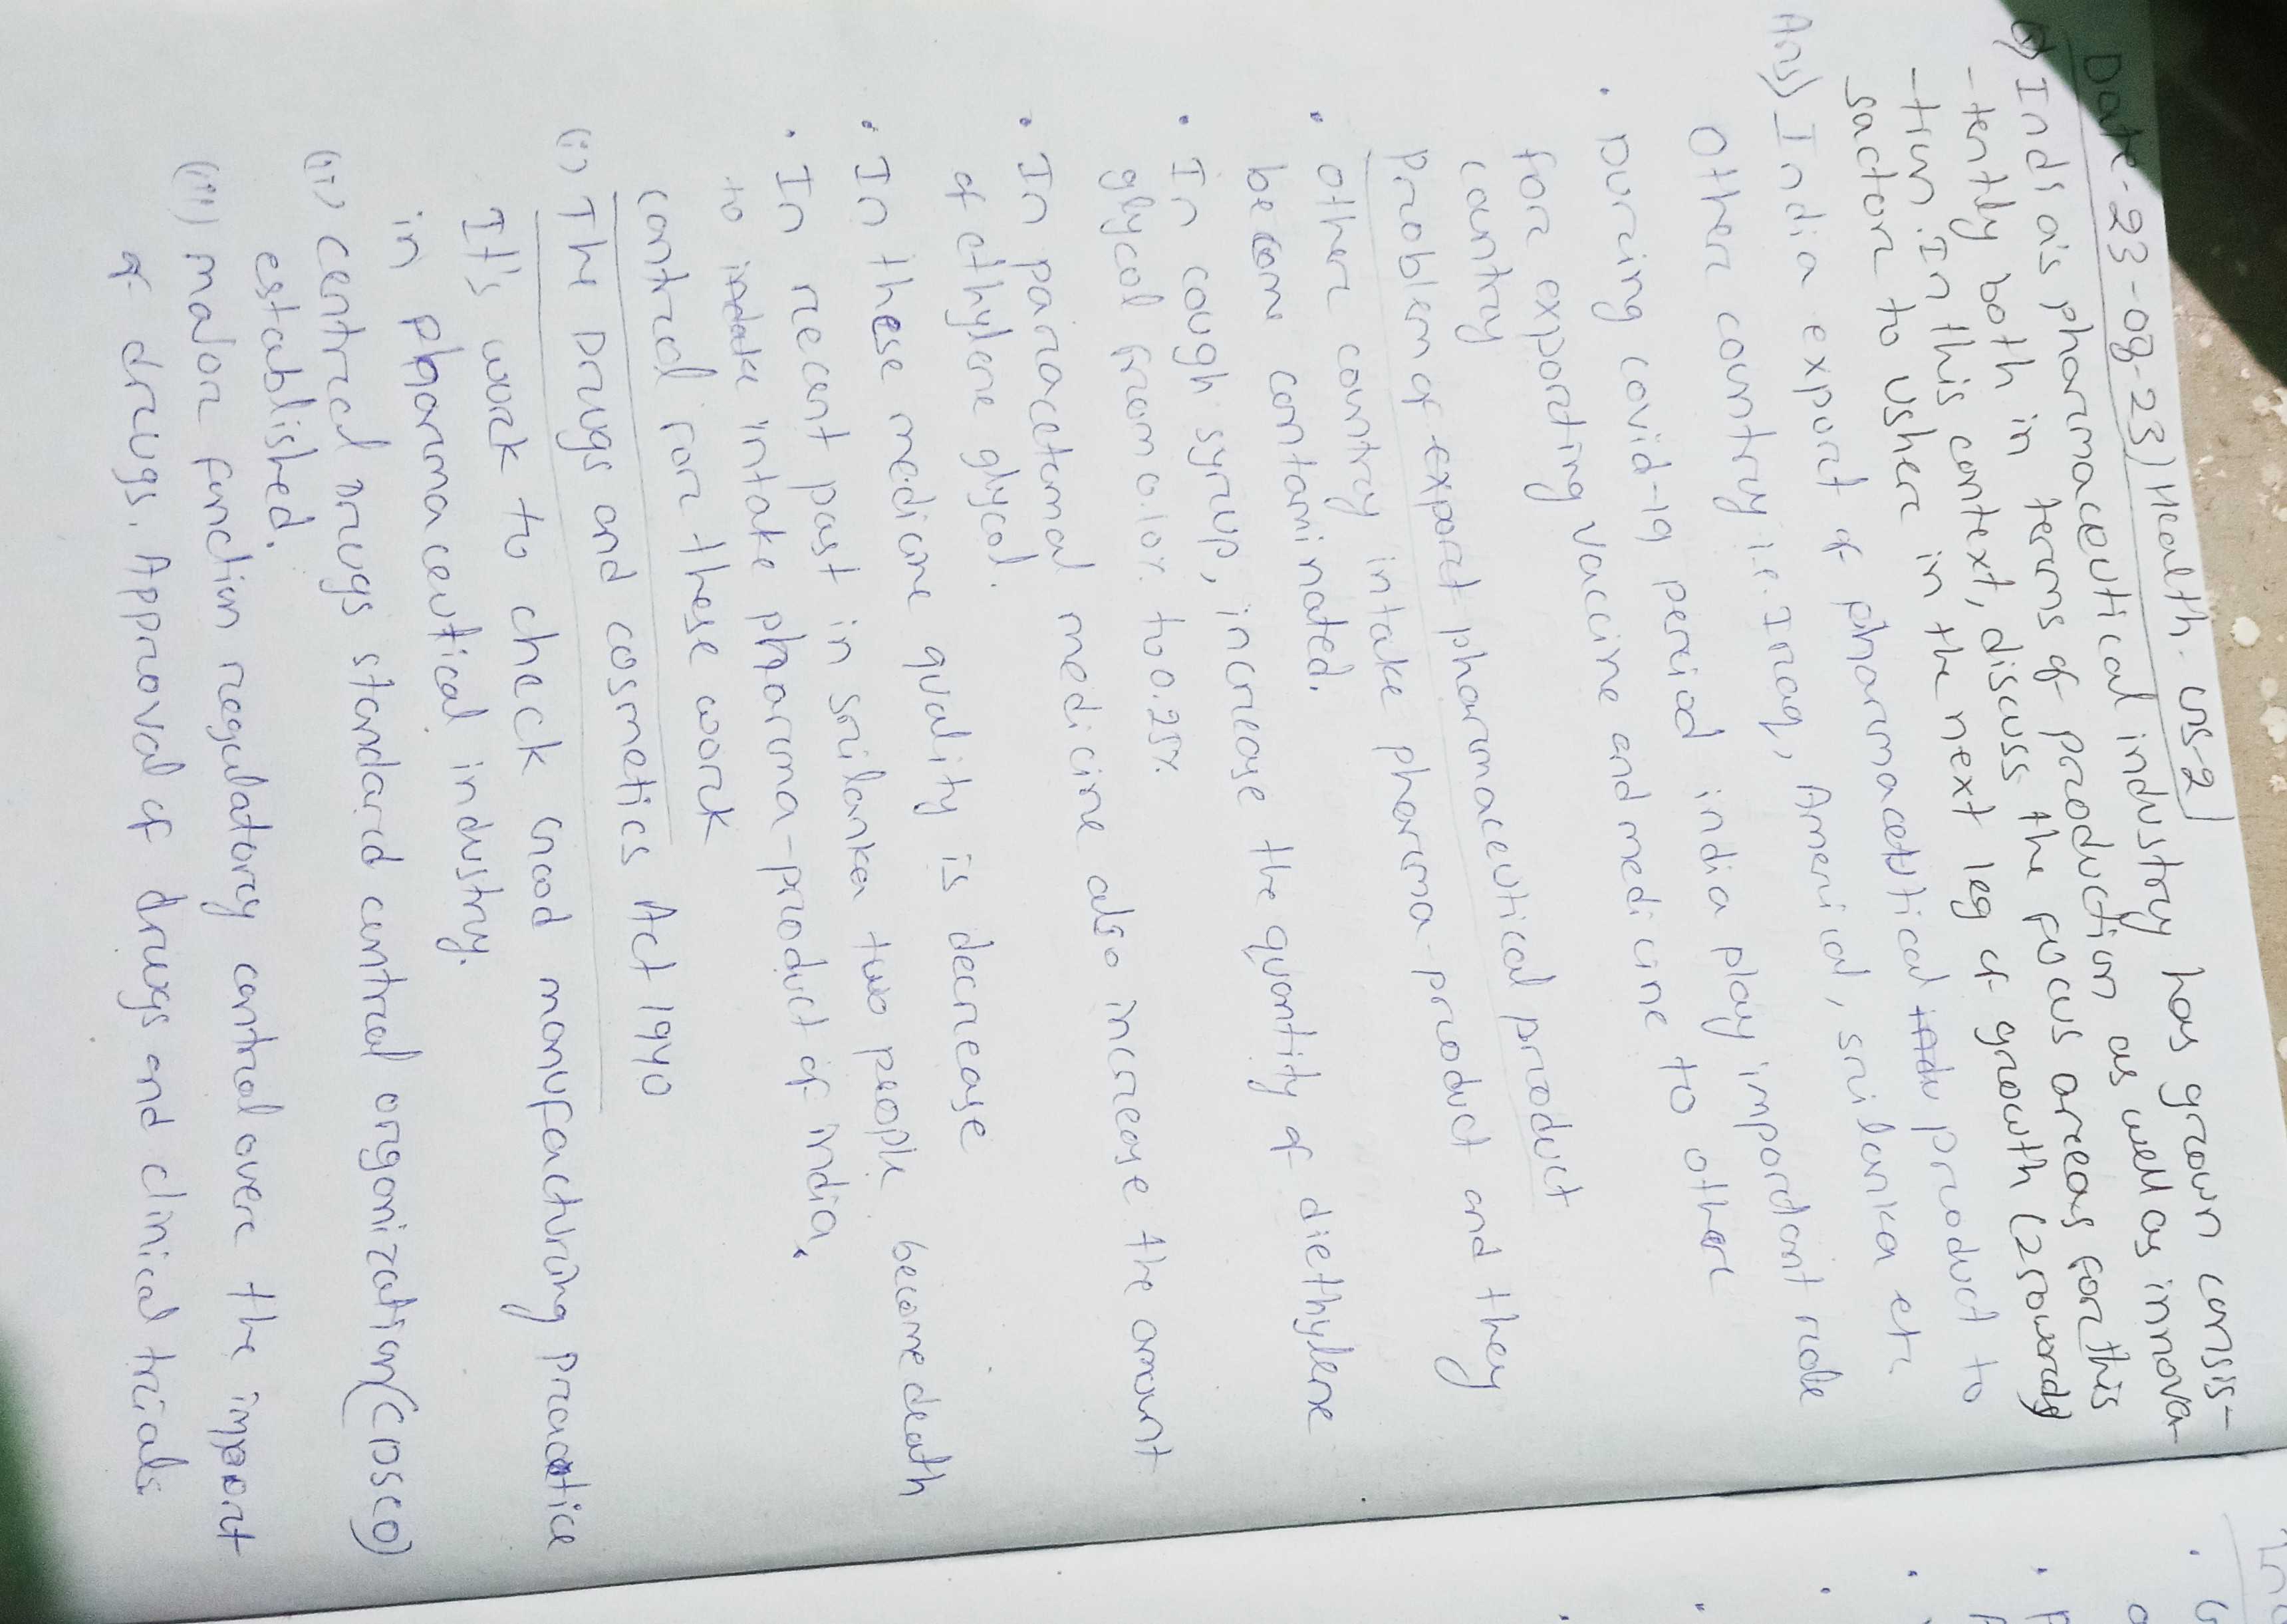 Date-23-08-23) Health. GS-2
Q) India's pharmaceutical industry has grown consis-
-tently both in terms of production as well as innova-
-tion. In this context, discuss the focus areas for this
sector to usher in the next leg of growth (250words)
Ans) India export of pharmaceutical product to
Other country i.e. Iraq, America, srilanka etc
• During covid-19 period india play important role
for exporting vaccine and medicine to other
country
Problem of export pharmaceutical product
• Other country intake pharma-product and they
become contaminated.
• In cough syrup, increase the quantity of diethylene
glycol from 0.10% to 0.25%.
• In paracetamal medicine also increase the amount
of ethylene glycol.
• In these medicine quality is decrease
• In recent past in srilanka two people become death
to intake pharma-product of india.
control for these work
(i) The Drugs and cosmetics Act 1940
It's work to check Good manufacturing practice
in pharmaceutical industry.
(ii) central Drugs standard control organization(CDSCO)
established.
(iii) major function regulatory control over the import
of drugs. Approval of drugs and clinical trials